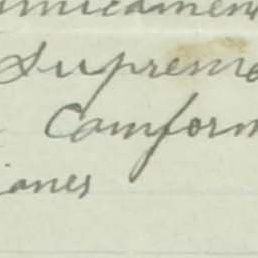 unicamen
Supremo
Comform
iones